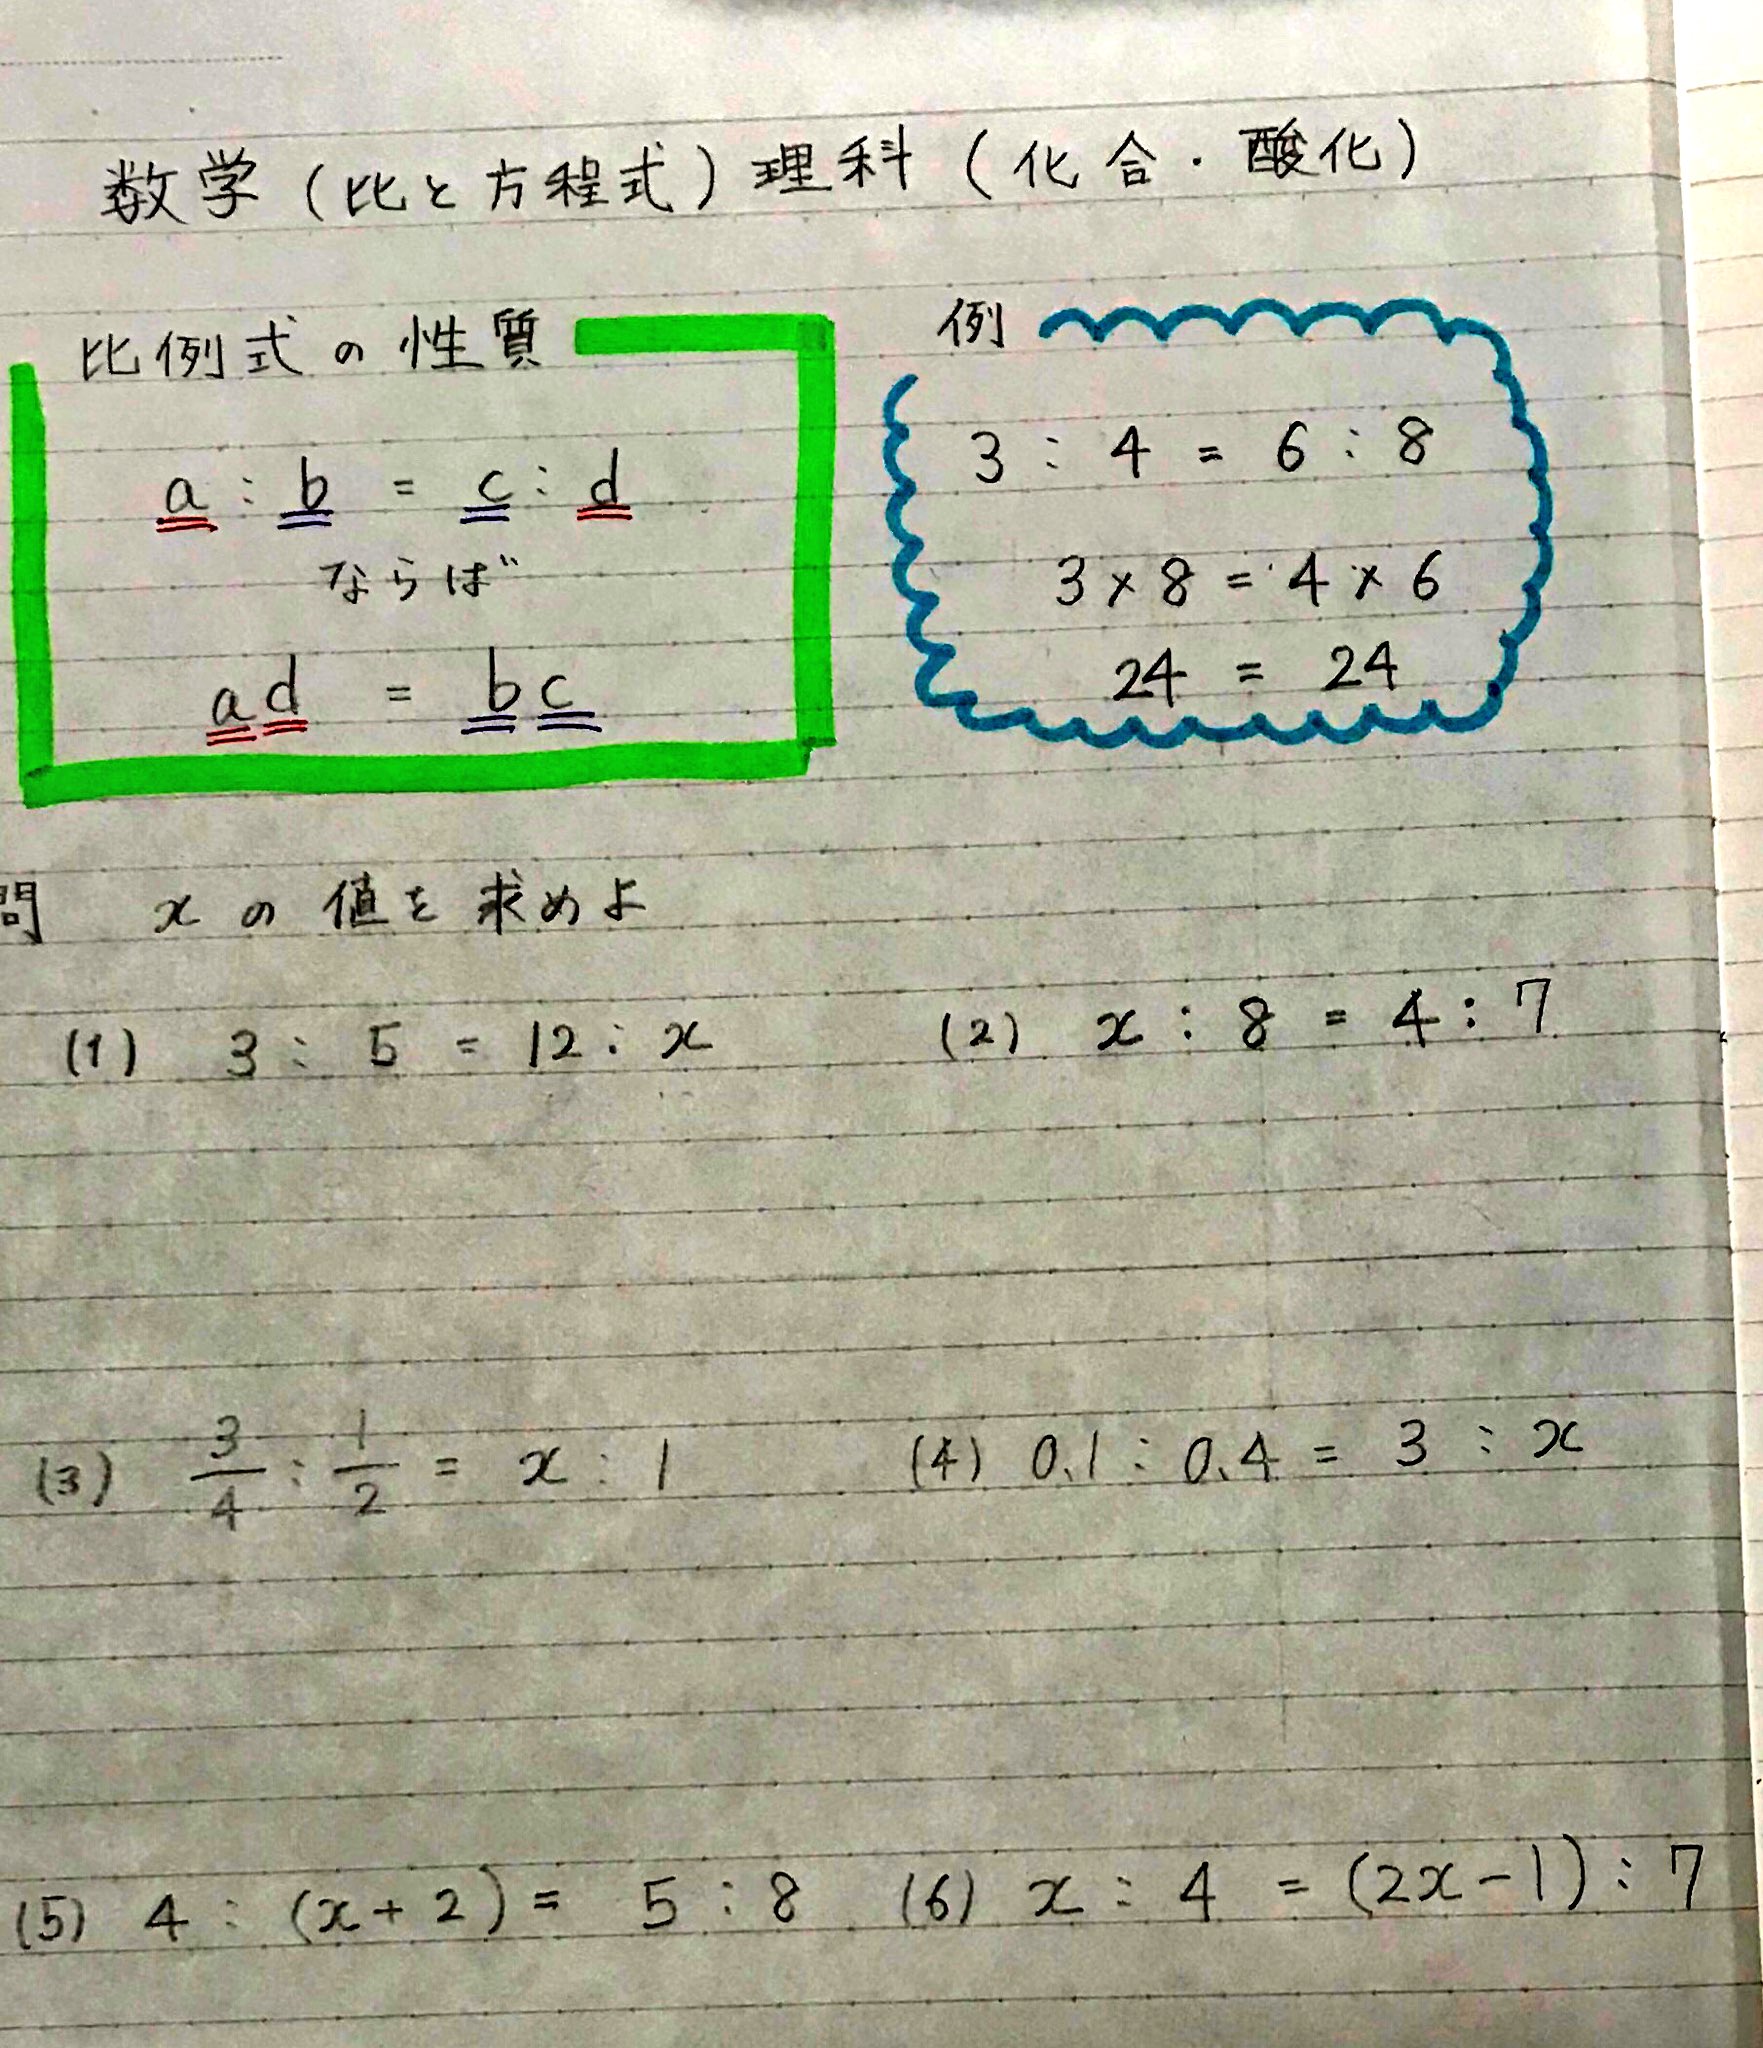 数学(比と方程式)理科(化合・酸化)
比例式の性質
a : b = c : d
ならば
ad = bc
例
3 : 4 = 6 : 8
3 × 8 = 4 × 6
24 = 24
問 xの値を求めよ
(1) 3 : 5 = 12 : x
(2) x : 8 = 4 : 7
(3) 3/4 : 1/2 = x : 1
(4) 0.1 : 0.4 = 3 : x
(5) 4 : (x+2) = 5 : 8
(6) x : 4 = (2x-1) : 7